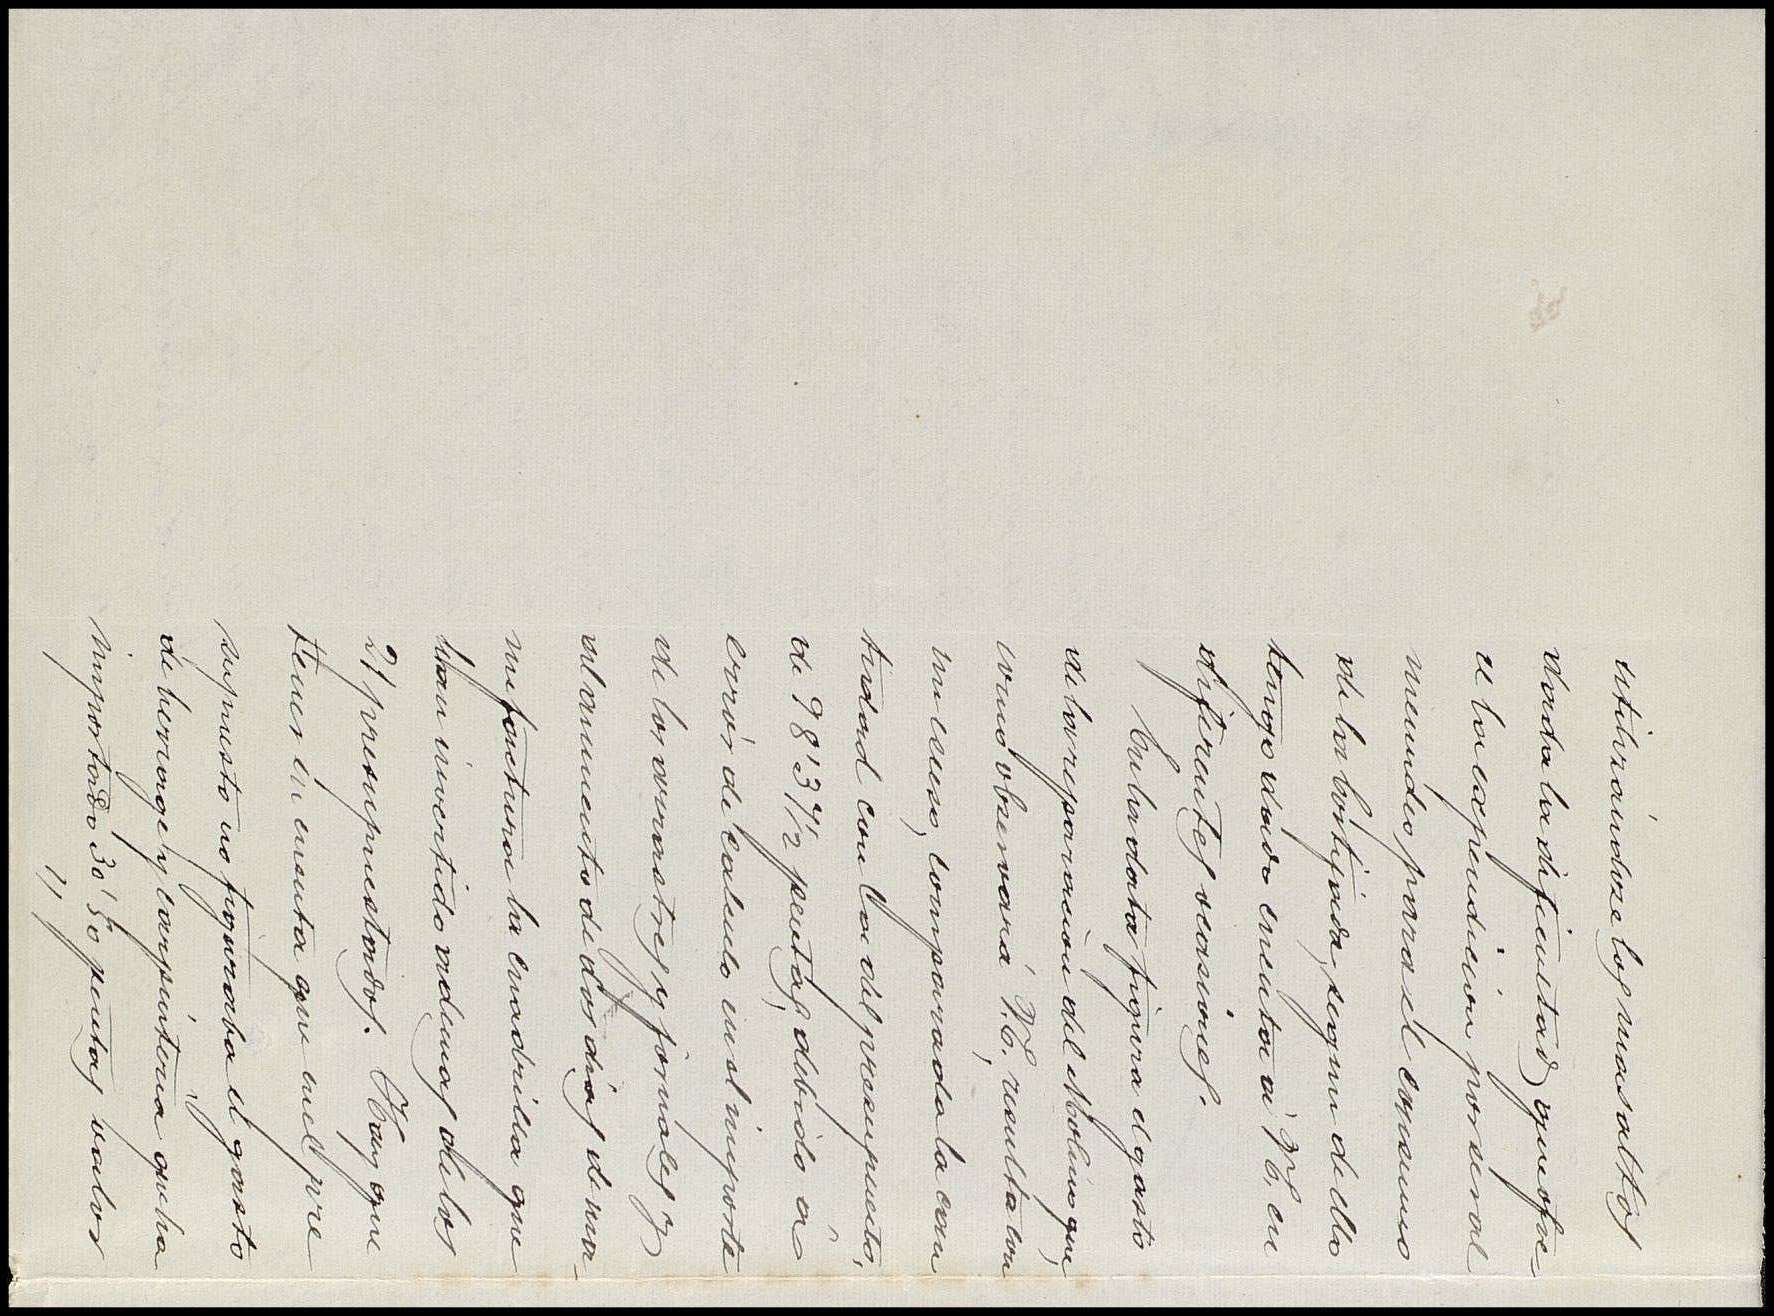 utilizandose los mas altos
dada la dificultad que ofre-
ce la expendicion por ser al
menudeo para el consumo
de la botijada, segun de ello
tengo dado cuenta á V.E. en
diferentes ocasiones.
En la data figura el gasto
de la reparacion del Molino que,
como observará V.E., resulta con
un exceso, comparada la can
tidad con la del presupuesto,
de 98'37½ pesetas, debido á
error de calculo en el importe
de los arrastres y jornales y
al aumento de dos dias de ma-
nufactura la cuadrilla que
han invertido ademas de los
21 presupuestados. Hay que
tener en cuenta que en el pre
supuesto no figuraba el gasto
de herrage y carpinteria que ha
importado 30'50 pesetas